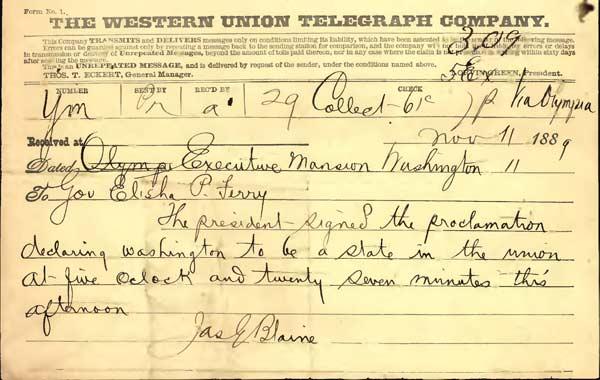 Form No. 1.
THE WESTERN UNION TELEGRAPH COMPANY.
This Company TRANSMITS and DELIVERS messages only on conditions limiting its liability, which have been assented to by the sender of the following message.
Errors can be guarded against only by repeating a message back to the sending station for comparison, and the company will not hold itself liable for errors or delays
in transmission or delivery of Unrepeated Messages, beyond the amount of tolls paid thereon, nor in any case where the claim is not presented in writing within sixty days
after sending the message.
This is an UNREPEATED MESSAGE, and is delivered by request of the sender, under the conditions named above.
THOS. T. ECKERT, General Manager. NORVIN GREEN, President.
309
NUMBER SENT BY REC'D BY CHECK
Ym a 29 Collect 61c Via Olympia
Received at Nov 11 1889
Dated Olympi Executive Mansion Washington 11
To Gov Elisha P. Ferry
The president signed the proclamation
declaring washington to be a state in the union
at five oclock and twenty seven minutes this
afternoon
Jas G Blaine